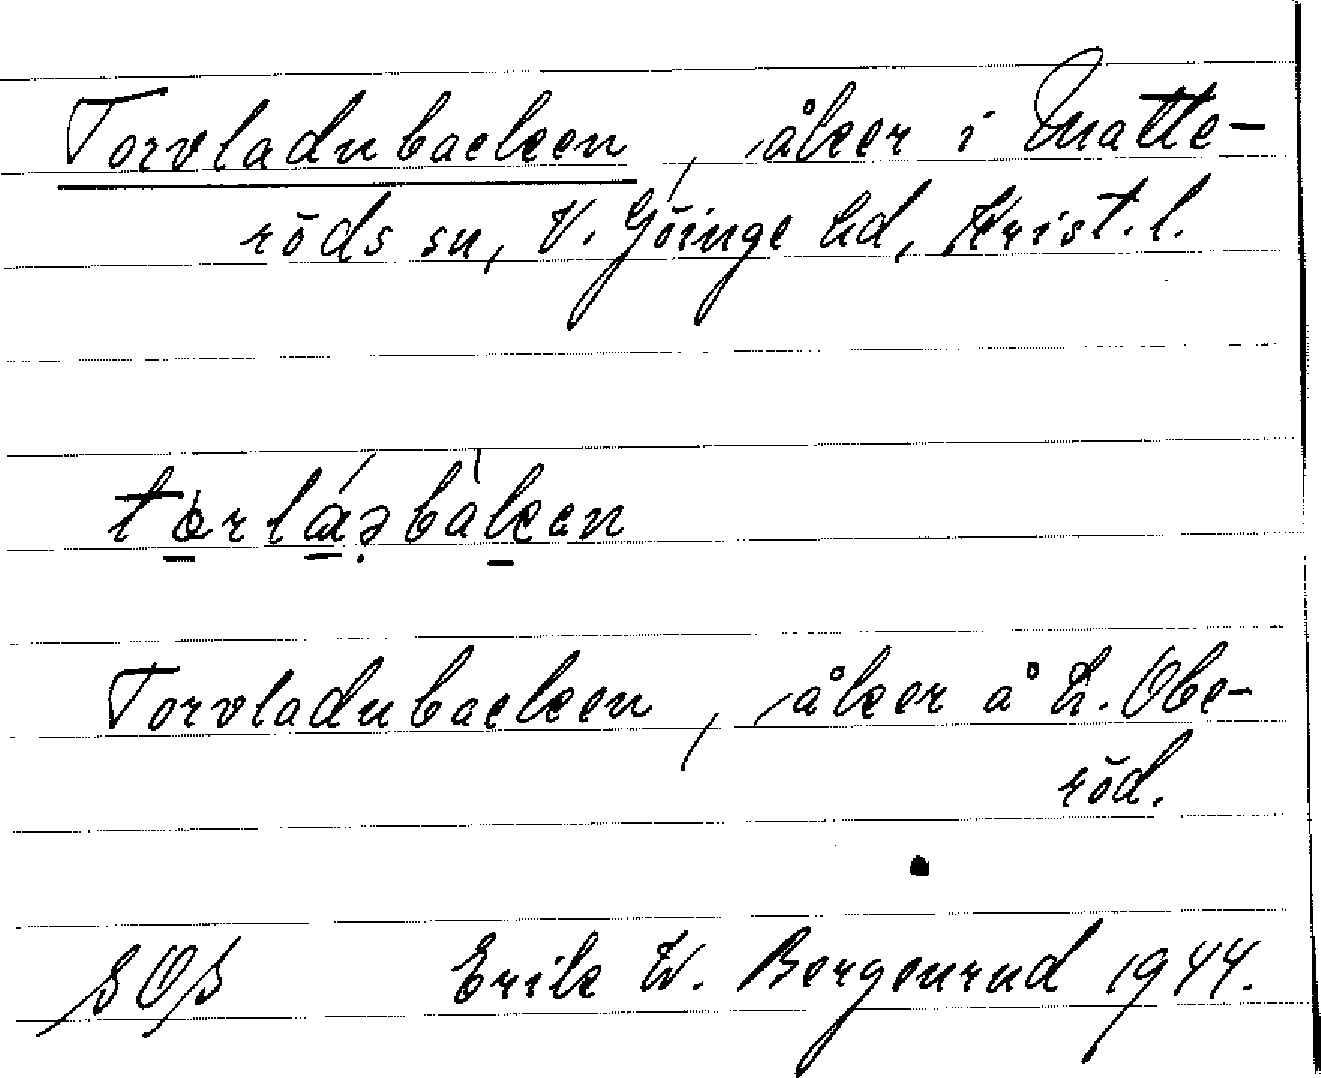 Torvladubacken, åker i Matte-
röds sn, V. Göinge hd, Krist. l.
tɵrláəbàkan
Torvladubacken, åker å L. Obe-
röd.
SOS Erik W. Bergenrud 1944.